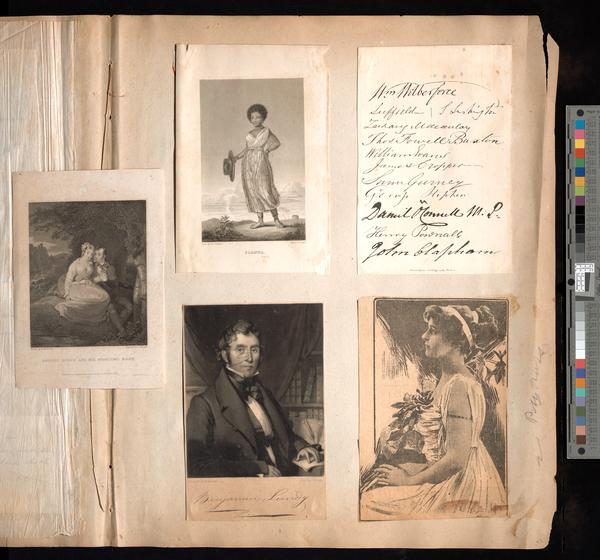 JOANNA.
Wm Wilberforce
Suffield | S. Lushington
Zachary Macaulay
Thos Fowell Buxton
William Evans
James Cropper
Saml Gurney
George Stephen
Daniel O'Connell M.P.
Henry Pownall
John Clapham
AND HIS HIGHLAND MARY
Benjamin Lundy